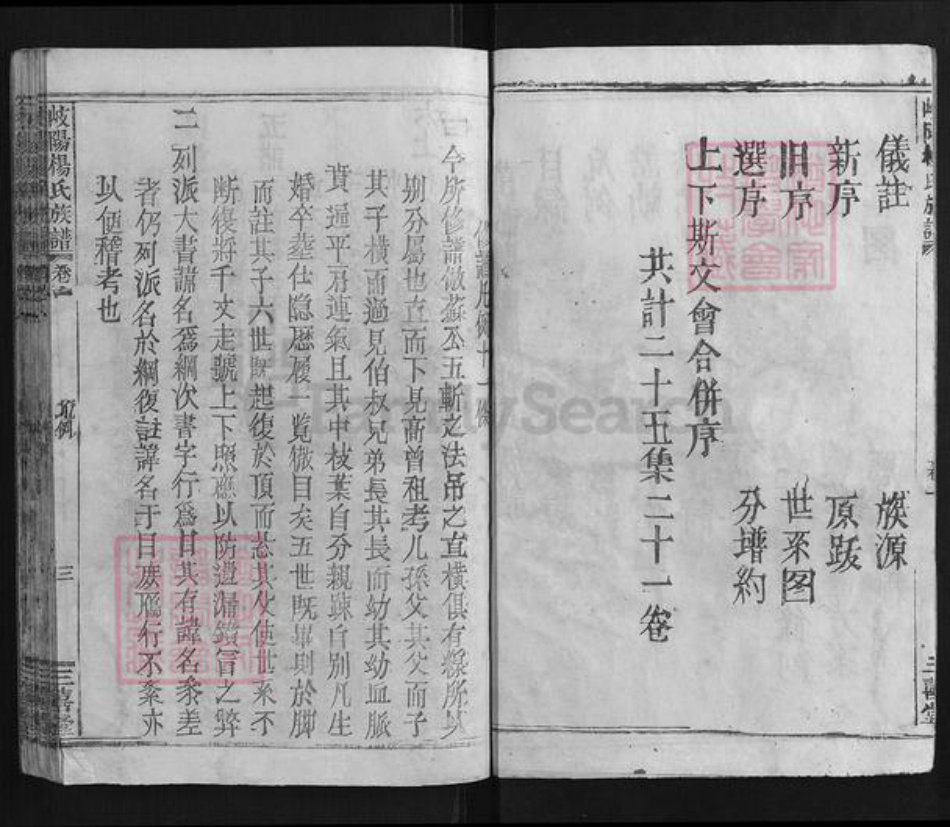 儀註　族源
新序　原跋
旧序　世系图
選序　分增約
上下斯文會合併序
共計二十五集二十一卷
三善堂
今所修譜倣蘇公五斬之法吊之直横俱有線所以
別分屬也直而下見高曾祖考儿孫父其父而子
其子横而過見伯叔兄弟長其長而幼其幼血脈
貴通平肩連氣且其中枝葉自分親踈自別凡生
婚卒塟仕隐歷履一覧徹目矣五世既畢則於脚
而註其子六世既起復於頂而志其父使世系不
断復將千文走號上下照應以防遺漏錯冒之弊
二列派大書諱名爲綱次書字行爲目其有諱名叅差
者仍列派名於綱復註諱名于目庶鴈行不紊亦
以便稽考也
岐陽楊氏族譜
卷一
凡例
三
三善堂
FamilySearch